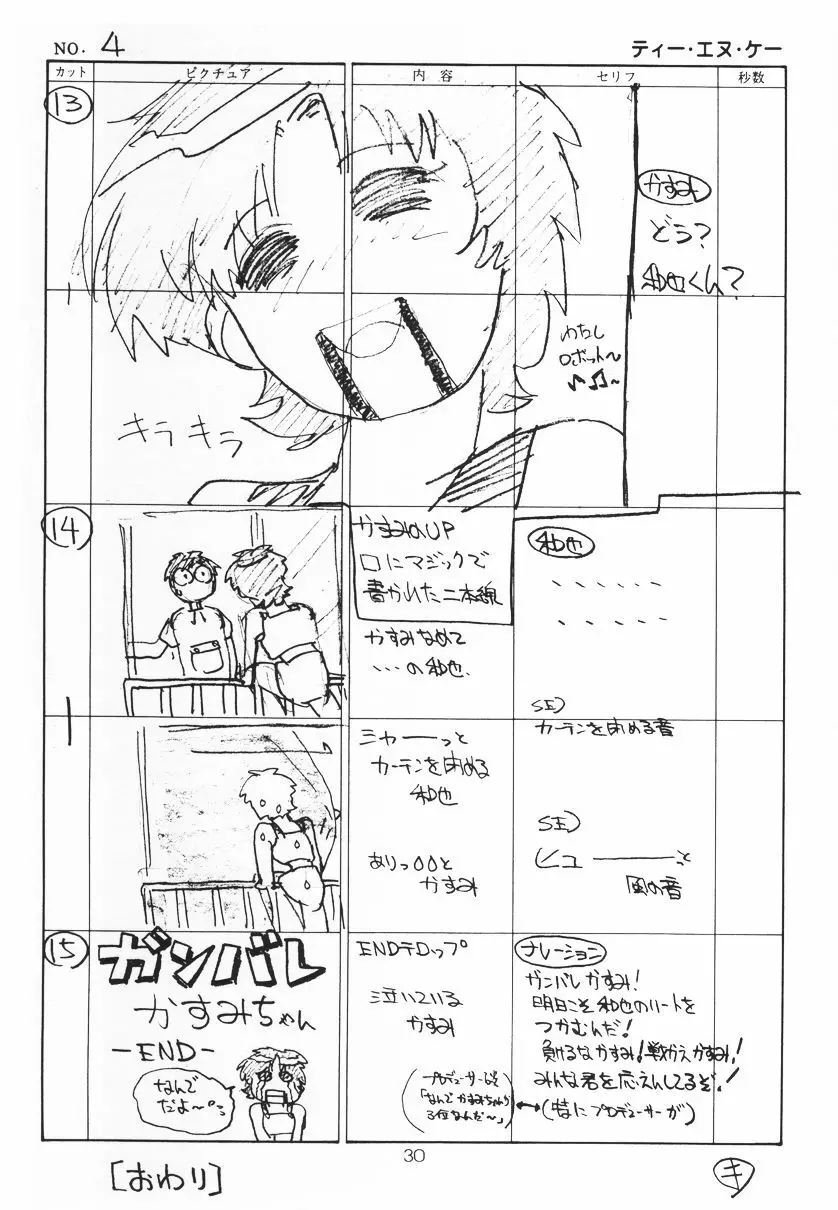 NO. 4
ティー・エヌ・ケー
カット ピクチュア 内容 セリフ 秒数
13
かすみ
どう?
和也くん?
わたし
ロボット〜
♪♫~
キラキラ
14
かすみのUP
口にマジックで
書かれた二本線
かすみなめて
・・・の和也
和也
、、、、、、
、、、、、
SE)
カーテンを閉める音
シャーーっと
カーテンを閉める
和也
ありっ００と
かすみ
SE)
ヒュ――――っと
風の音
15
ガンバレ
かすみちゃん
-END-
なんで
だよ〜
ENDテロップ
泣いている
かすみ
ナレーション
ガンバレかすみ!
明日こそ和也のハートを
つかむんだ!
負けるなかすみ!戦かえかすみ!
みんな君を応えんしてるぞ!
(特にプロデューサーが)
「なんでかすみちゃんが
3位なんだ〜」
30
[おわり]
キ